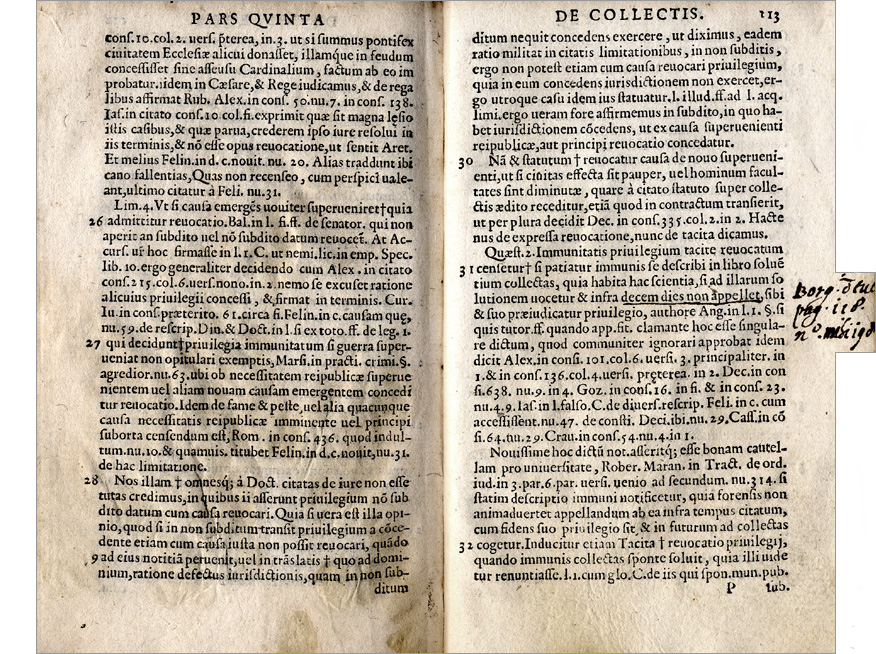 PARS QVINTA
cons.10.col.2. uers. p̃terea, in.3. ut si summus pontifex
ciuitatem Ecclesiæ alicui donasset, illamq́ue in feudum
concessisset sine assensu Cardinalium, factum ab eo im
probatur: idem in Cæsare, & Rege iudicamus, & de rega
libus affirmat Rub. Alex. in cons. 50.nu.7. in cons. 138.
Ias. in citato cons.10 col.fi. exprimit quæ sit magna læsio
istis casibus, & quæ parua, crederem ipso iure resolui in
iis terminis, & nõ esse opus reuocatione, ut sentit Aret.
Et melius Felin. in d. c. nouit. nu. 20. Alias traddunt ibi
cano fallentias, Quas non recenseo, cum perspici uale-
ant, ultimo citatur à Feli. nu.31.
Lim.4. Vt si causa emergẽs uouiter superueniret † quia
26 admittitur reuocatio. Bal. in l. fi. ff. de senator. qui non
aperit an subdito uel nõ subdito datum reuocet. At Ac-
curs. ur̃ hoc firmasse in l. 1. C. ut nemi. lic. in emp. Spec.
lib. 10. ergo generaliter decidendo cum Alex. in citato
cons.215.col.6.uers.nono.in.2. nemo se excuset ratione
alicuius priuilegii concessi, & firmat in terminis. Cur.
Iu. in cons. præterito. 61. circa fi. Felin. in c. causam quę,
nu.59.de rescrip. Din. & Doct. in l. si ex toto. ff. de leg. 1.
27 qui decidunt † priuilegia immunitatum si guerra super-
ueniat non opitulari exemptis, Marsi. in practi. crimi. §.
agredior.nu.63.ubi ob necessitatem reipublicæ superue
nientem uel aliam nouam causam emergentem concedi
tur reuocatio. Idem de fame & peste, uel alia quacunque
causa necessitatis reipublicæ imminente uel principi
suborta censendum est, Rom. in cons. 436. quod indul-
tum.nu.10.& quamuis. titubet Felin. in d.c. nouit, nu.31.
de hac limitatione.
28 Nos illam † omnesq; à Doct. citatas de iure non esse
tutas credimus, in quibus ii asserunt priuilegium nõ sub
dito datum cum causa reuocari. Quia si uera est illa opi-
nio, quod si in non subditum transit priuilegium a cõce-
dente etiam cum causa iusta non possit reuocari, quãdo
9 ad eius notitiã peruenit, uel in trãslatis † quo ad domi-
nium, ratione defectus iurisdictionis, quam in non sub-
ditum
DE COLLECTIS. 113
ditum nequit concedens exercere, ut diximus, eadem
ratio militat in citatis limitationibus, in non subditis,
ergo non potest etiam cum causa reuocari priuilegium,
quia in eum concedens iurisdictionem non exercet, er-
go utroque casu idem ius statuatur. l. illud. ff. ad l. acq.
limi. ergo ueram fore affirmemus in subdito, in quo ha-
bet iurisdictionẽ cõcedens, ut ex causa superuenienti
reipublicæ, aut principi reuocatio concedatur.
30 Nã & statutum † reuocatur causa de nouo superueni-
enti, ut si ciuitas effecta sit pauper, uel hominum facul-
tates sint diminutæ, quare à citato statuto super colle-
ctis ædito receditur, etiã quod in contractum transierit,
ut per plura decidit Dec. in cons. 335.col.2.in 2. Hacte
nus de expressa reuocatione, nunc de tacita dicamus.
Quæst. 2. Immunitatis priuilegium tacite reuocatum
31 censetur † si patiatur immunis se describi in libro soluẽ
tium collectas, quia habita hac scientia, si ad illarum so
lutionem uocetur & infra decem dies non ãppellet, sibi
& suo præiudicatur priuilegio, authore Ang. in l. 1. §. si
quis tutor. ff. quando app. sit. clamante hoc esse singula-
re dictum, quod communiter ignorari approbat idem
dicit Alex. in consi. 101.col.6. uersi. 3. principaliter. in
1.& in cons.136.col.4.uersi. pręterea. in 2. Dec. in con
si.638. nu.9. in 4. Goz. in cons. 16. in fi. & in cons. 23.
nu.4.9. Ias. in l. falso. C. de diuers. rescrip. Feli. in c. cum
accessissent. nu.47. de consti. Deci. ibi. nu.29. Cass. in cõ
si. 64. nu. 29. Crau. in cons. 54. nu. 4. in 1.
Nouissime hoc dictũ not. asseritq; esse bonam cautel-
lam pro uniuersitate, Rober. Maran. in Tract. de ord.
iud. in 3. par. 6. par. uersi. uenio ad secundum. nu. 314. si
statim descriptio immuni notificetur, quia forensis non
animaduertet appellandum ab ea infra tempus citatum,
cum fidens suo priuilegio sit, & in futurum ad collectas
32 cogetur. Inducitur etiam Tacita † reuocatio priuilegij,
quando immunis collectas sponte soluit, quia illi uide
tur renuntiasse. l. 1. cum glo. C. de iis qui spon. mun. pub.
P sub.
Borg.
pag. 118.